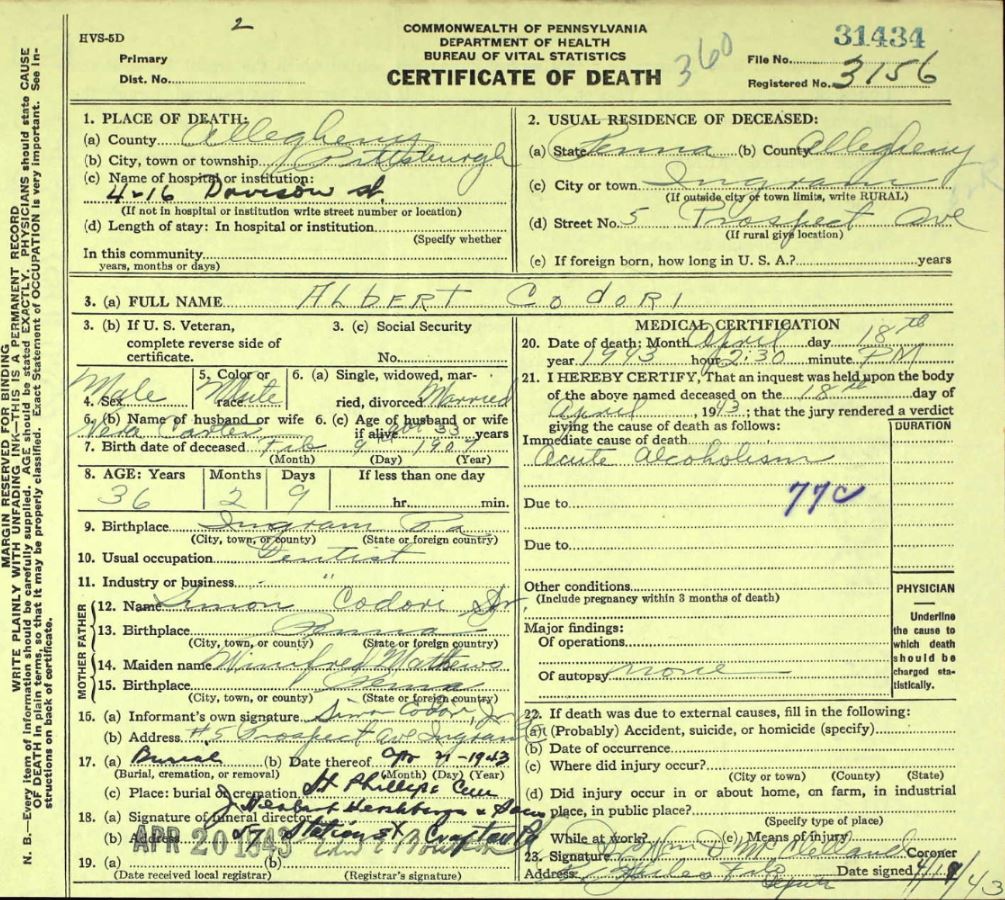 HVS-5D
2
COMMONWEALTH OF PENNSYLVANIA
DEPARTMENT OF HEALTH
BUREAU OF VITAL STATISTICS
CERTIFICATE OF DEATH
Primary
Dist. No.
360
31434
File No.
Registered No. 3156
MARGIN RESERVED FOR BINDING
WRITE PLAINLY WITH UNFADING INK—THIS IS A PERMANENT RECORD
N. B.—Every item of information should be carefully supplied. AGE should be stated EXACTLY. PHYSICIANS should state CAUSE
OF DEATH in plain terms, so that it may be properly classified. Exact Statement of OCCUPATION is very important. See In-
structions on back of certificate.
1. PLACE OF DEATH:
(a) County Allegheny
(b) City, town or township Pittsburgh
(c) Name of hospital or institution:
4-16 Davison st.
(If not in hospital or institution write street number or location)
(d) Length of stay: In hospital or institution
(Specify whether
In this community
years, months or days)
2. USUAL RESIDENCE OF DECEASED:
(a) State Penna (b) County Allegheny
(c) City or town Ingram
(If outside city or town limits, write RURAL)
(d) Street No. 5 Prospect Ave
(If rural give location)
(e) If foreign born, how long in U. S. A.? years
3. (a) FULL NAME ALBERT CODORI
3. (b) If U. S. Veteran,
complete reverse side of
certificate.
3. (c) Social Security
No.
4. Sex Male
5. Color or
race White
6. (a) Single, widowed, mar-
ried, divorced Married
6. (b) Name of husband or wife
6. (c) Age of husband or wife
if alive 33 years
7. Birth date of deceased Feb 9 1907
(Month) (Day) (Year)
8. AGE: Years Months Days If less than one day
36 2 9 hr. min.
9. Birthplace Ingram Pa
(City, town, or county) (State or foreign country)
10. Usual occupation Dentist
11. Industry or business "
FATHER
12. Name Simon Codori Jr.
13. Birthplace Penna
(City, town, or county) (State or foreign country)
MOTHER
14. Maiden name Winifred Mathews
15. Birthplace Penna
(City, town, or county) (State or foreign country)
16. (a) Informant's own signature Simon Codori Jr.
(b) Address #5 Prospect Ave Ingram
17. (a) Burial (b) Date thereof Apr 21-1943
(Burial, cremation, or removal) (Month) (Day) (Year)
(c) Place: burial or cremation St Phillips Cem
18. (a) Signature of funeral director J Herbert Hershberger & Sons
(b) Address 47 Station St Crafton Pa
APR 20 1943
19. (a) (b)
(Date received local registrar) (Registrar's signature)
MEDICAL CERTIFICATION
20. Date of death: Month April day 18th
year 1943 hour 2:30 minute PM
21. I HEREBY CERTIFY, That an inquest was held upon the body
of the above named deceased on the 18th day of
April, 1943; that the jury rendered a verdict
giving the cause of death as follows:
DURATION
Immediate cause of death
Acute Alcoholism
Due to
77c
Due to
Other conditions
(Include pregnancy within 3 months of death)
Major findings:
Of operations
Of autopsy none
PHYSICIAN
Underline
the cause to
which death
should be
charged sta-
tistically.
22. If death was due to external causes, fill in the following:
(a) (Probably) Accident, suicide, or homicide (specify)
(b) Date of occurrence
(c) Where did injury occur?
(City or town) (County) (State)
(d) Did injury occur in or about home, on farm, in industrial
place, in public place?
(Specify type of place)
While at work? (e) Means of injury
23. Signature Coroner
Address Date signed 4/19/43
Deputy